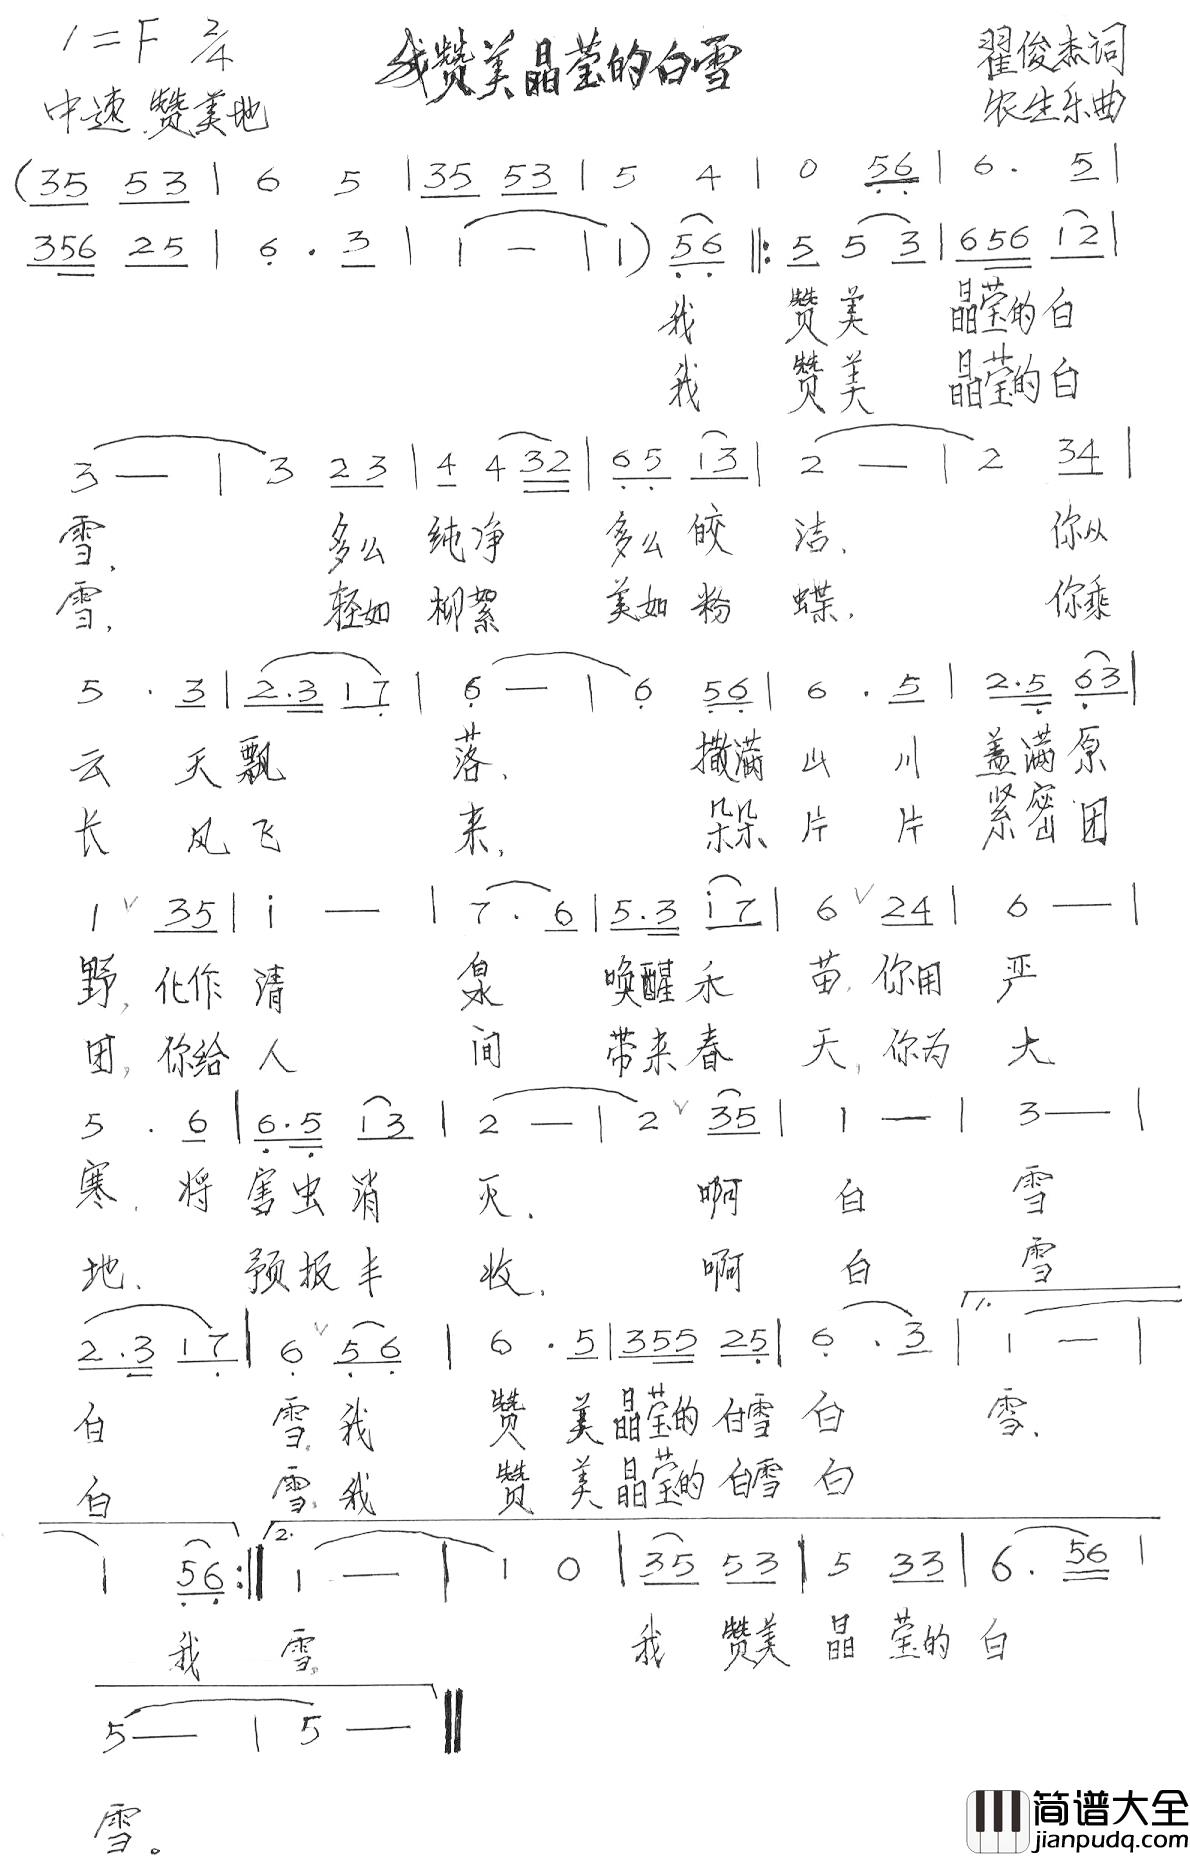 1=F 2/4
我赞美晶莹的白雪
翟俊杰词
中速 赞美地
农生乐曲
(35 53 | 6 5 | 35 53 | 5 4 | 0 56 | 6. 5 |
356 25 | 6. 3 | 1 — | 1) 56 ‖: 5 5 3 | 656 12 |
我 赞美 晶莹的白
我 赞美 晶莹的白
3 — | 3 23 | 4 4 32 | 65 13 | 2 — | 2 34 |
雪, 多么 纯净 多么 皎 洁, 你从
雪, 轻如 柳絮 美如 粉 蝶, 你乘
5 . 3 | 2.3 17 | 6 — | 6 56 | 6 . 5 | 2.5 63 |
云 天 飘 落, 撒满 山 川 盖满 原
长 风 飞 来, 朵朵 片 片 紧密 团
1 ∨ 35 | i — | 7. 6 | 5.3 i7 | 6 ∨ 24 | 6 — |
野, 化作 清 泉 唤醒 禾 苗, 你用 严
团, 你给 人 间 带来 春 天, 你为 大
5 . 6 | 6.5 13 | 2 — | 2 ∨ 35 | 1 — | 3 — |
寒, 将 害虫 消 灭, 啊 白 雪
地, 预报 丰 收, 啊 白 雪
1.
2.3 17 | 6 ∨ 56 | 6 . 5 | 355 25 | 6 . 3 | 1 — |
白 雪, 我 赞 美 晶莹的 白雪 白 雪,
白 雪, 我 赞 美 晶莹的 白雪 白
2.
1 56 :‖ 1 — | 1 0 | 35 53 | 5 33 | 6. 56 |
我 雪, 我 赞美 晶 莹的 白
5 — | 5 — ‖
雪。
简谱大全
jianpudq.com